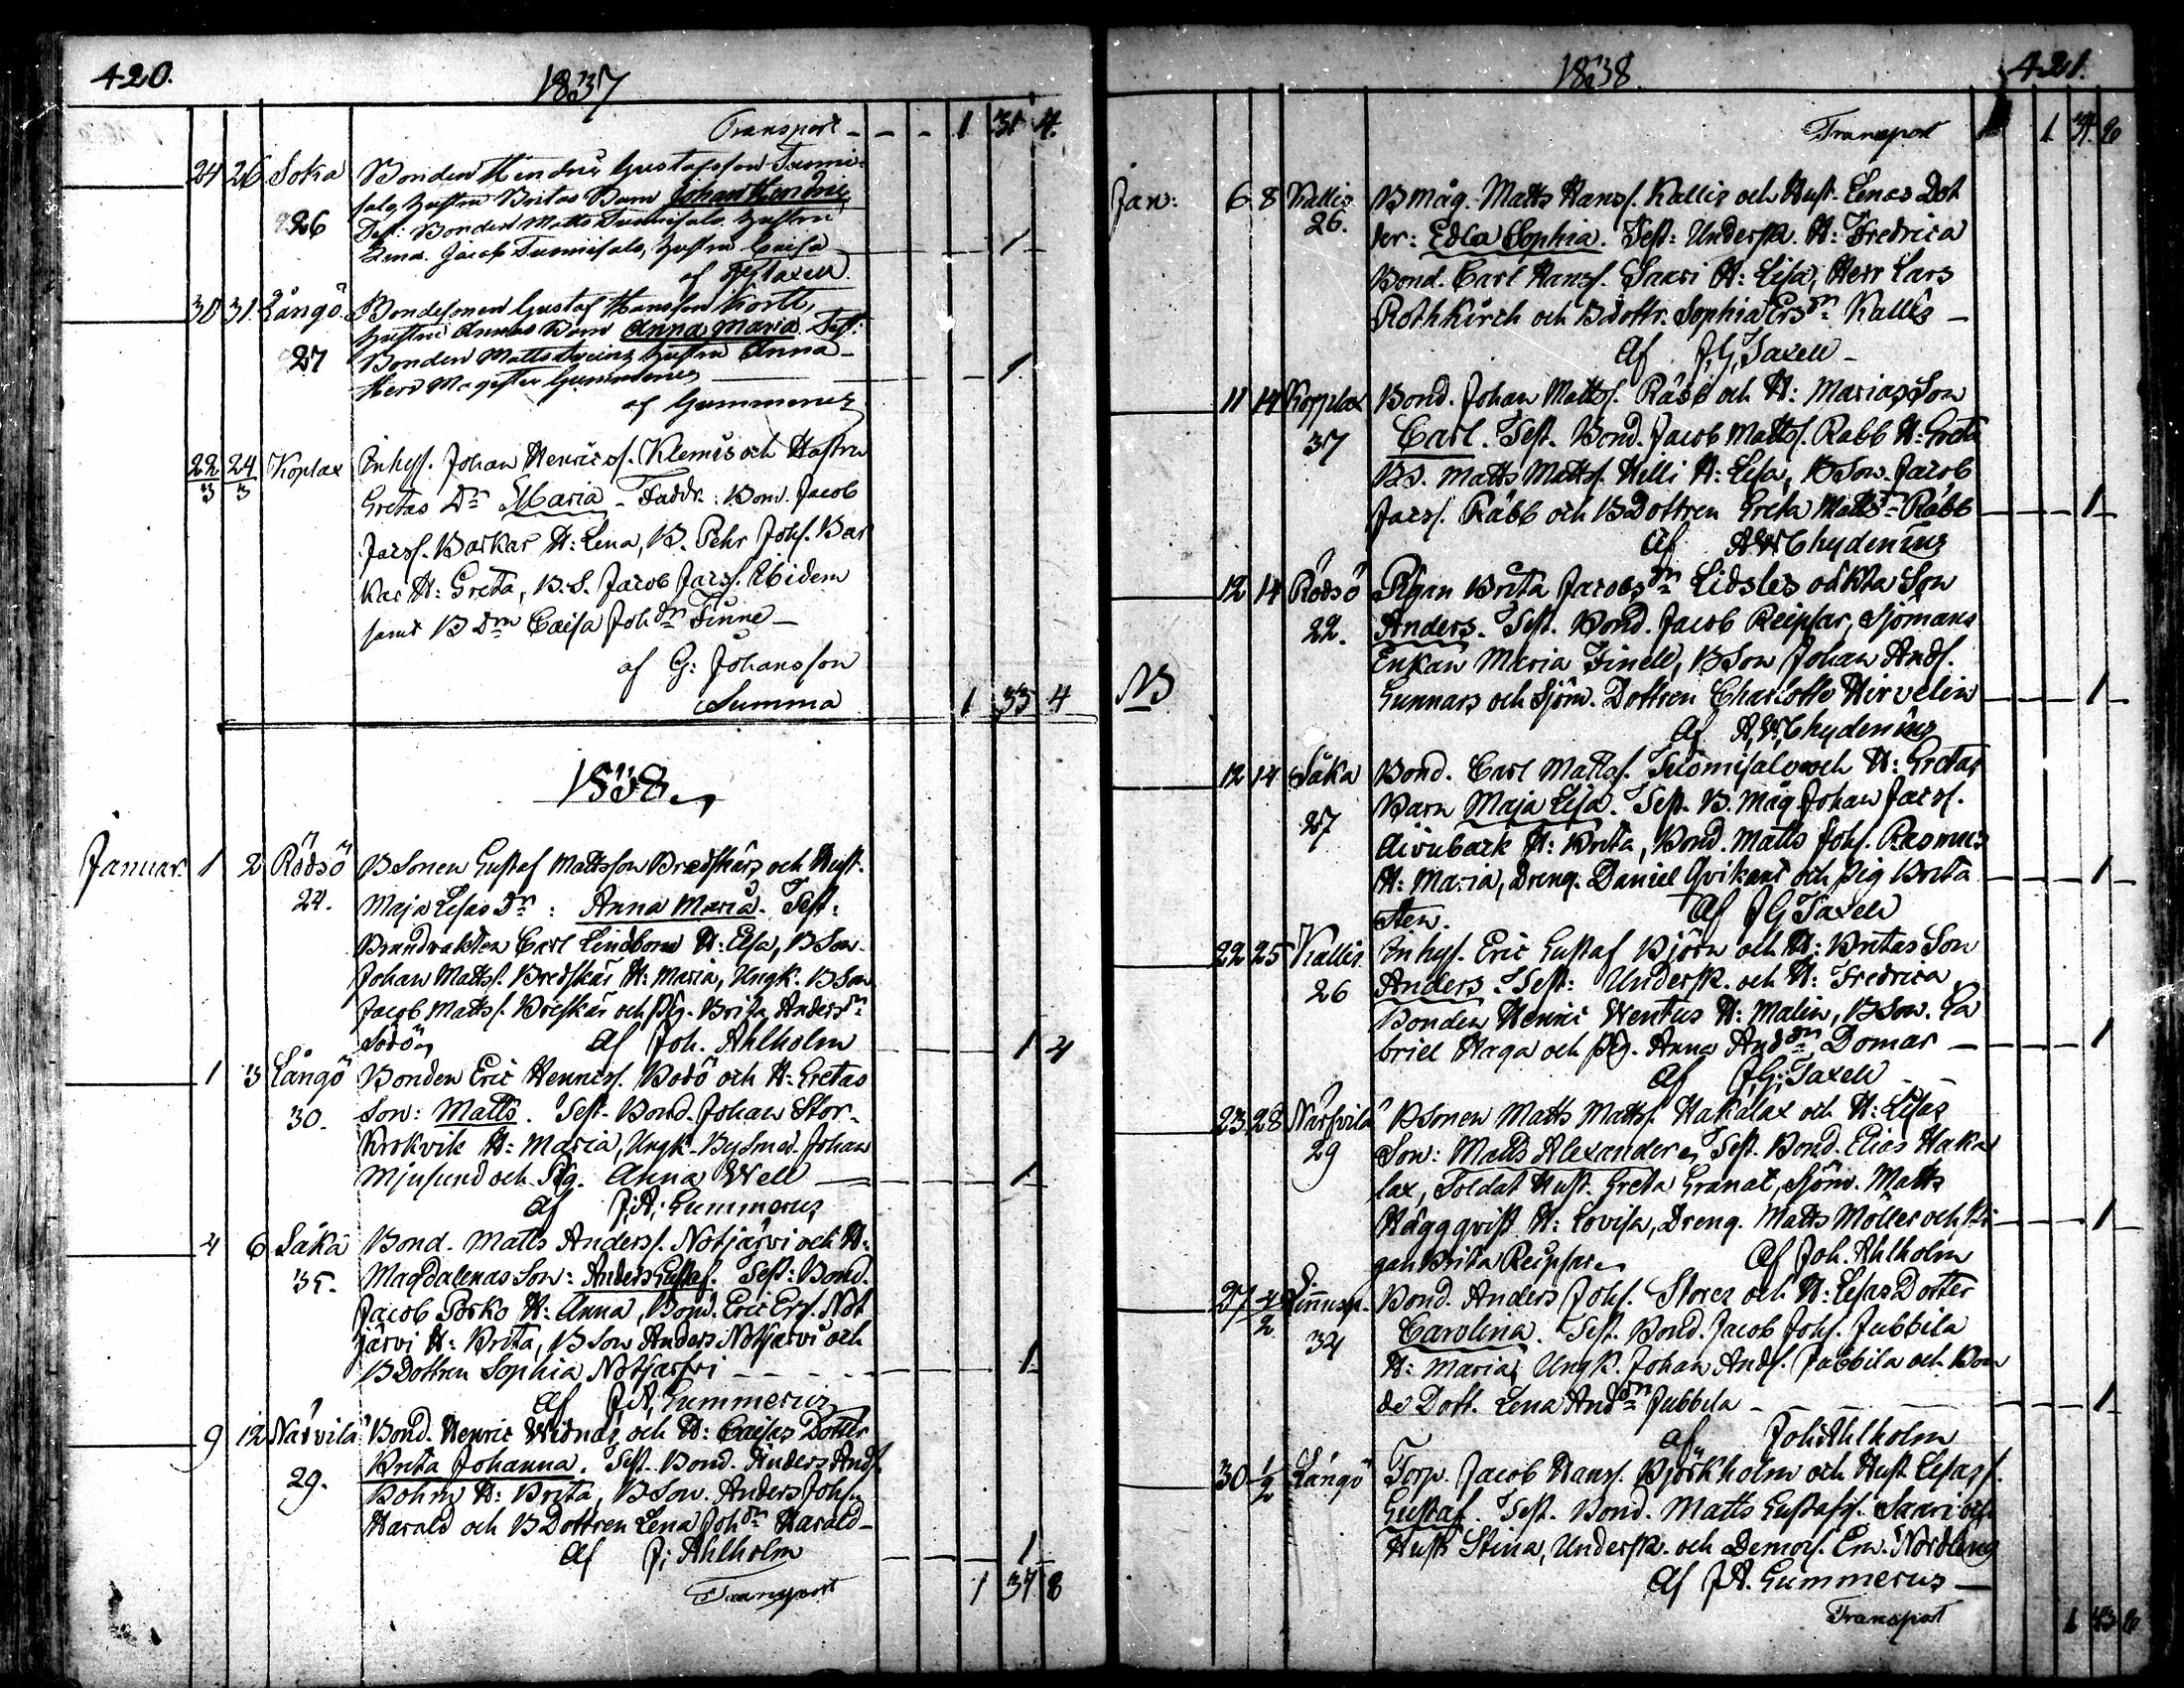 420.
1837
Transport - - - 1 31 4.
24 26 Soka Bonden Hendric Gustafsson Tuomi-
salo hustru Britas Barn Johan Hendric
26 Test: Bonden Matts Tuomisalo hustru
Lena. Jacob Tuomisalo, hustru Caisa 1
af JGTaxell
30 31. Långö. Bondesonen Gustaf Hansson Kortt,
hustru Annas Barn Anna Maria Test:
27 Bonden Matts hustru Anna
Herr Magister Gummerus 1
af Gummerus
22/3 24/3 Koplax Inhys. Johan Henrics. Klemis och Hustru
Gretas Dr Maria - Faddr.: Bond. Jacob
Jacs. Backar H: Lena, B. Pehr Johs. Bac
kar H: Greta, B.S. Jacob Jacs. Ibidem
samt B Drn Caisa Joh dr Finne
af G: Johansson
Summa 1 33 4
1838
Januar. 1 2 Rödsö BSonen Gustaf Mattsson Bredskärs och Hust.
24. Maja Lisas Dr: Anna Maria. Test:
Brandvakten Carl Lindbom H: Elsa, BSon.
Johan Matts. Bredskär H: Maria, Ungk. BSon
Jacob Matts. Breskär och Pig. Brita Anders dr
Södö af Joh. Ahlholm 1 4
1 3 Långö Bonden Eric Henrics. Bodö och H: Gretas
30. Son: Matts. Test. Bond. Johan Stor-
Krokvik H: Maria, Ungk. Bysmed. Johan
Mjusund och Pig. Anna Well 1
af J.A. Gummerus
4 6 Såkå Bond. Matts Anders. Notjärvi och H:
35. Magdalenas Son: Anders Gustaf. Test: Bond.
Jacob Porko H: Anna, Bond. Eric Ers. Not
järvi H: Brita, BSon Anders Notjärvi och
BDottren Sophia Notjärfvi 1
af J.A. Gummerus
9 12 Närvilä Bond. Henric Widnäs och H: Caisas Dotter
29. Brita Johanna. Test. Bond. Anders Ands.
Bohm H: Brita, BSon. Anders Johs.
Harald och BDottren Lena Joh dr Harald
af J: Ahlholm 1
Transport 1 37 8
1838.
421.
Transport 1 37. 8
Jan: 6 8 Kallis B Måg. Matts Hans. Kallis och Hust. Lenas Dot
26. ter: Edla Sophia. Test: Undersk. H: Fredrica
Bond. Carl Hans. Saari H: Lisa, Herr Lars
Rothkirch och BDottr. Sophia Ers dr Kallis
af J.G.Taxell
11 14 Kopplax Bond. Johan Matts. Räbb och H: Marias Son
37 Carl. Test. Bond. Jacob Matts. Rabb H: Greta
BS. Matts Matts. Hilli H: Lisa, BSon. Jacob
Jacs. Räbb och BDottren Greta Matts dr Räbb 1
af A.W.Chydenius
12 14 Rödsö Pigan Brita Jacobs dr Lidsles oäkta Son
22. Anders. Test. Bond. Jacob Reipsar, Sjömans
Enkan Maria Finell, BSon Johan Ands.
NB Gunnars och Sjöm. Dottren Charlotte Hirvelin 1
af A.W.Chydenius
12 14 Såka Bond. Carl Matts. Tuomisalo och H: Gretas
27 Barn Maja Lisa. Test. B. Måg Johan Jacs.
Aivuback H: Brita, Bond. Matts Johs. Rasmus
H: Maria, Dreng. Daniel Qvikant och Pig Brita 1
Sten. af JGTaxell
22 25 Kallis. Inhys. Eric Gustaf Björn och H: Britas Son
26 Anders. Test: Undersk. och H: Fredrica
Bonden Henric Wentus H: Malin, BSon. Ga
briel Haga och Pig. Anna And dr Domar 1
af J.G.Taxell
23 28 Närfvilä BSonen Matts Matts. Hakalax och H: Lisas
29 Son: Matts Alexander, Test. Bond. Elias Haka
lax, Soldat Hust. Greta Granat, Sjöm. Matts
Häggqvist H: Lovisa, Dreng. Matts Möller och Pi 1
gan Brita Reipsar af Joh. Ahlholm
27 4/2 Linnusp. Bond. Anders Johs. Storez och H: Lisas Dotter
34 Carolina. Test. Bond. Jacob Johs. Jubbila
H: Maria, Ungk. Johan Ands. Jubbila och Bon
de Dott. Lena And dr Jubbila 1
af Joh:Ahlholm
30 1/2 Långö Torp. Jacob Hans. Björkholm och Hust Lisas s.
Gustaf. Test. Bond. Matts Gustafs. Saari och
Hust. Stina, Undersk. och Demois. Em. Nordling
af J.A. Gummerus
Transport 1 43 8